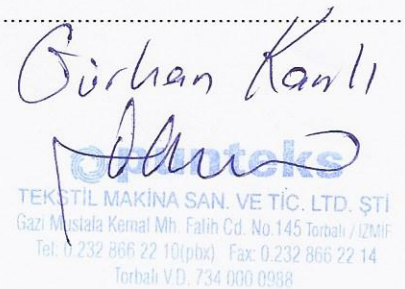 Gürhan Kanlı
panteks
TEKSTİL MAKİNA SAN. VE TİC. LTD. ŞTİ
Gazi Mustafa Kemal Mh. Fatih Cd. No.145 Torbalı / İZMİR
Tel: 0.232 866 22 10(pbx) Fax: 0.232 866 22 14
Torbalı V.D. 734 000 0988